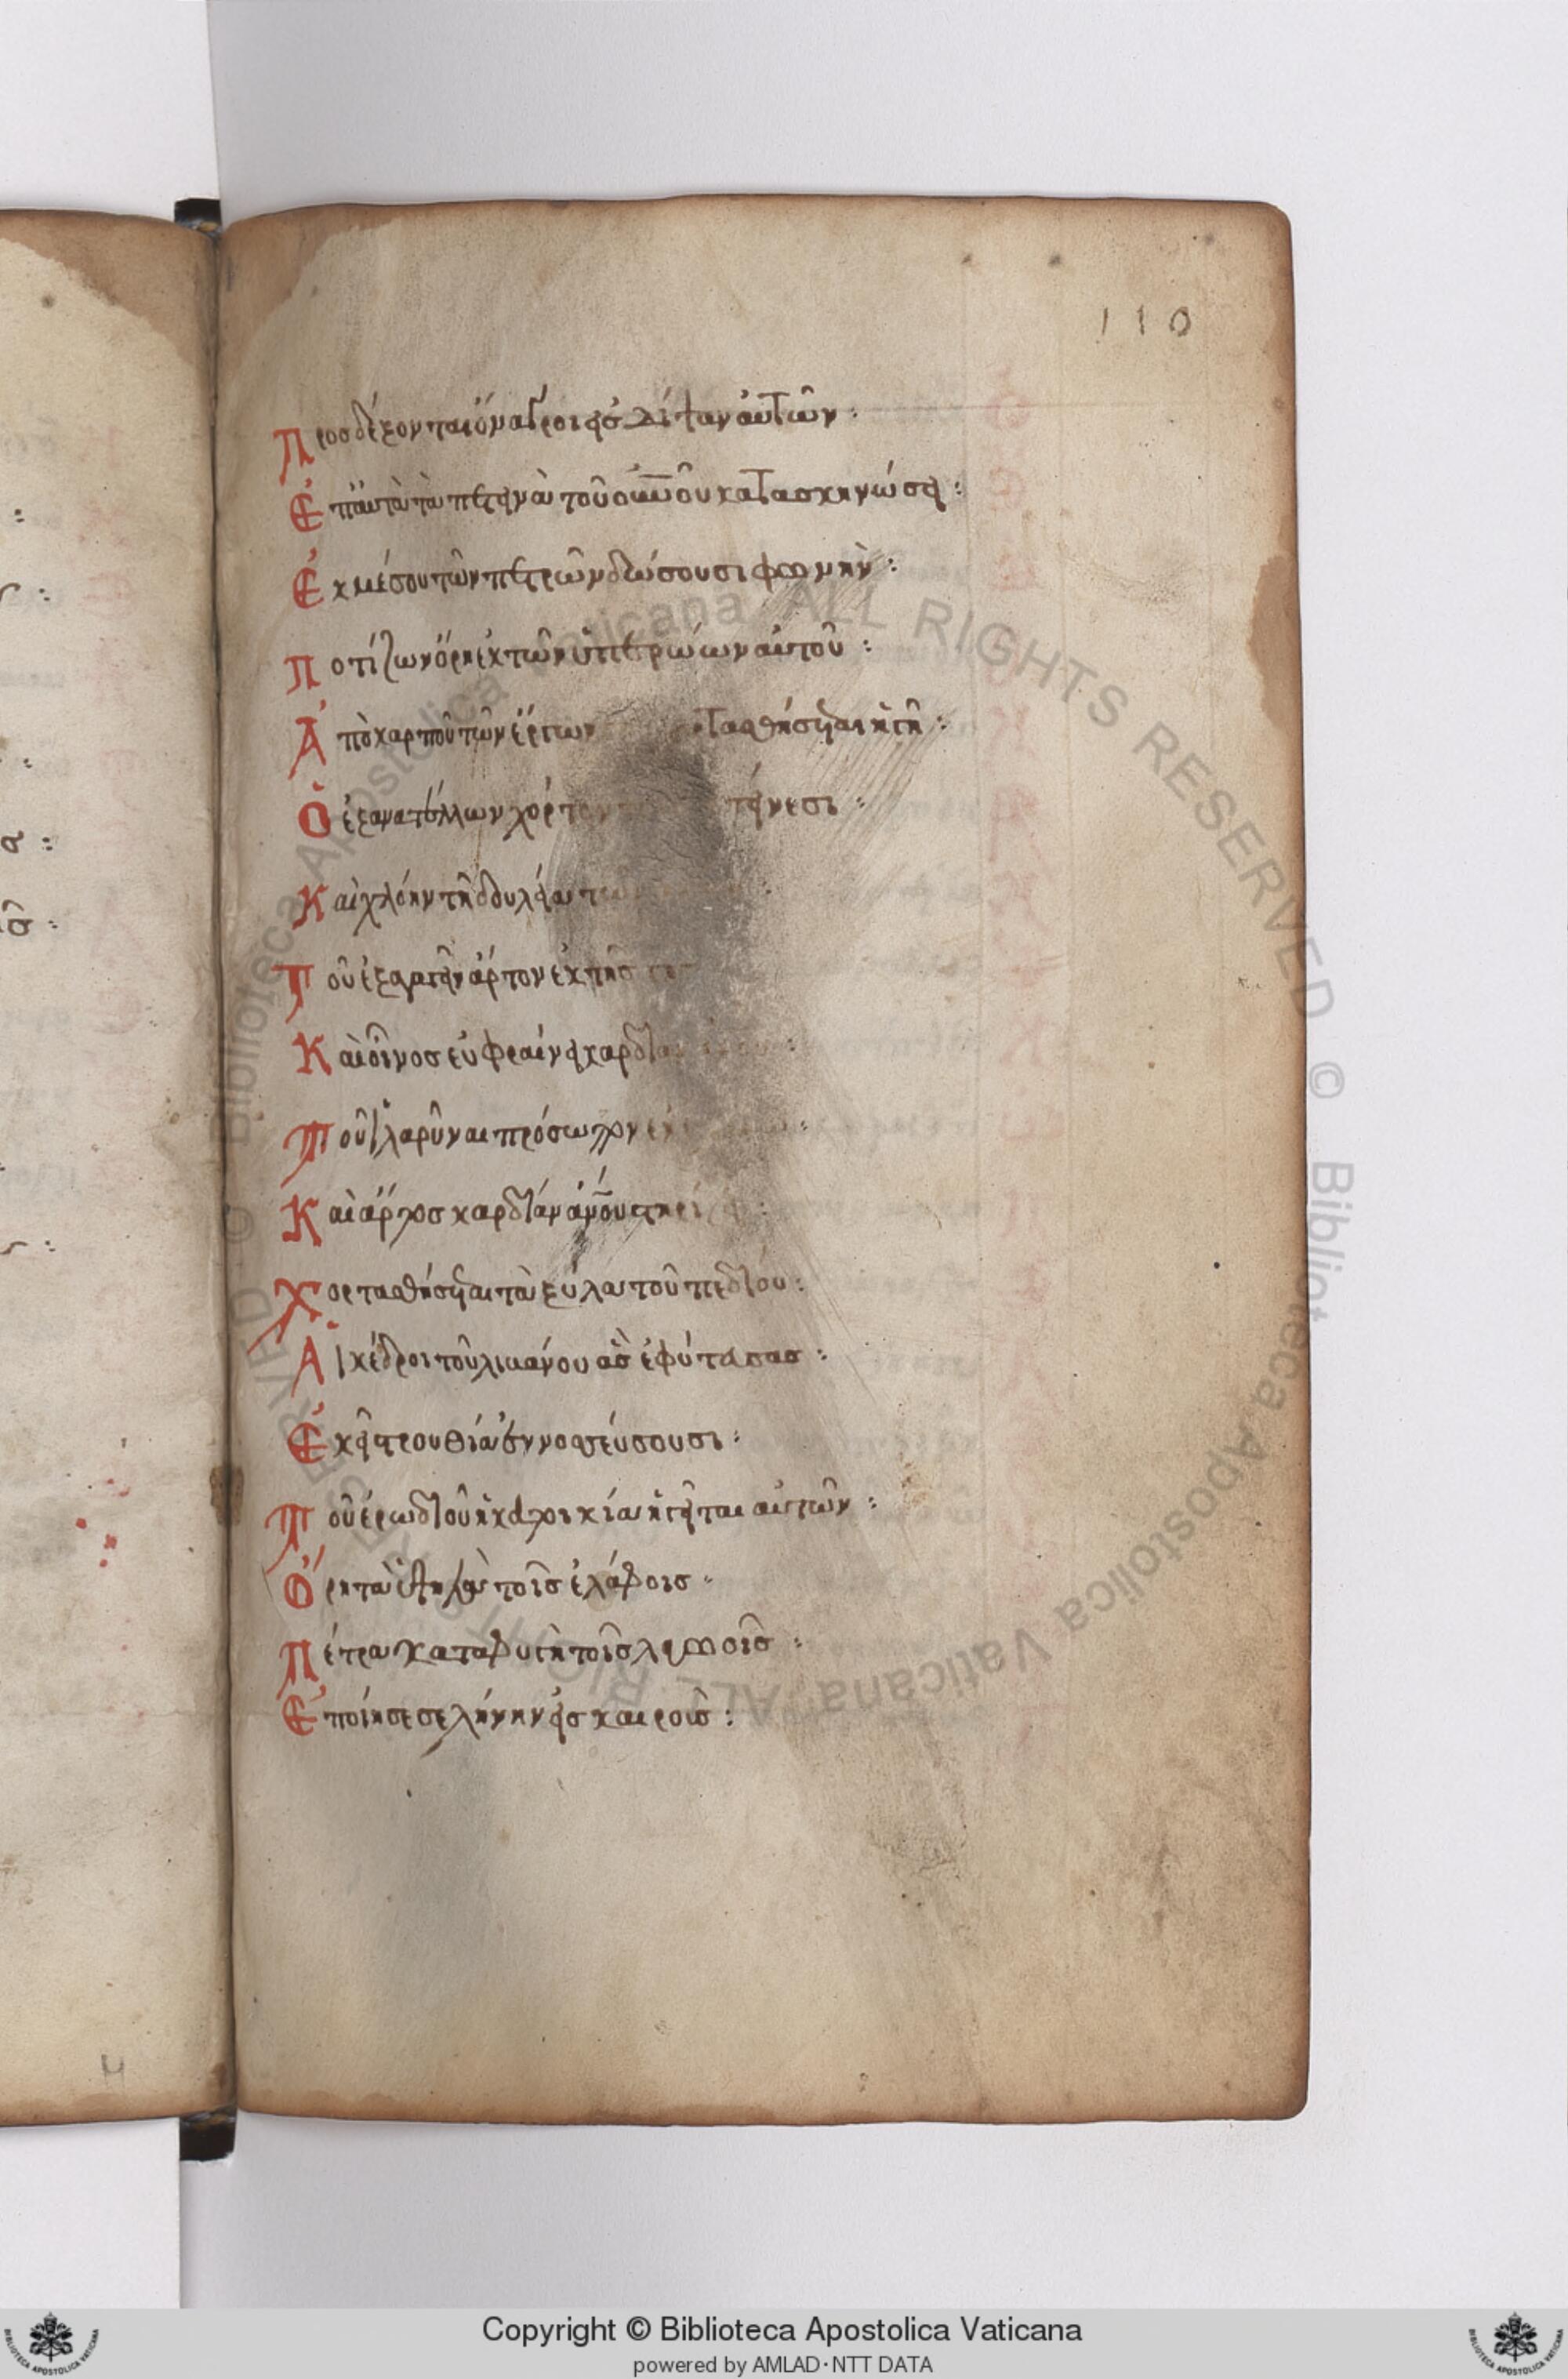 110
Προσδέξονται ὄναγροι εἰς δίψαν αὐτῶν :
Ἐπ αὐτὰ τὰ πετεινὰ τοῦ οὐνοῦ κατασκηνώσει :
Ἐκ μέσου τῶν πετρῶν δώσουσι φωνὴν :
Ποτίζων ὄρη ἐκ τῶν ὑπερώων αὐτοῦ :
Ἀπὸ καρποῦ τῶν ἔργων χορτασθήσεται ἡ γῆ :
Ὁ ἐξανατέλλων χόρτον κτήνεσι :
Καὶ χλόην τῆ δουλεία τῶν
Τοῦ ἐξαγαγεῖν ἄρτον ἐκ τῆς γῆς
Καὶ οἶνος εὐφραίνει καρδίαν
Τοῦ ἱλαρῦναι πρόσωπον ἐν
Καὶ ἄρτος καρδίαν ἀνου στηρίζει :
Χορτασθήσεται τὰ ξύλα τοῦ πεδίου :
Αἱ κέδροι τοῦ λιβάνου ἃς ἐφύτευσας :
Ἐκεῖ στρουθία ἐννοσσεύσουσι :
Τοῦ ἐρωδιοῦ ἡ κατοικία ἡγεῖται αὐτῶν :
Ὄρη τὰ ὑψηλὰ τοῖς ἐλάφοις :
Πέτρα καταφυγὴ τοῖς λαγωοῖς :
Ἐποίησε σελήνην εἰς καιροὺς :
Copyright © Biblioteca Apostolica Vaticana
powered by AMLAD·NTT DATA